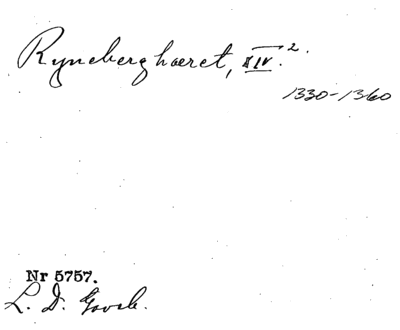 Ryneberghoeret, XIV².
1330-1360
Nr 5757.
L. D.